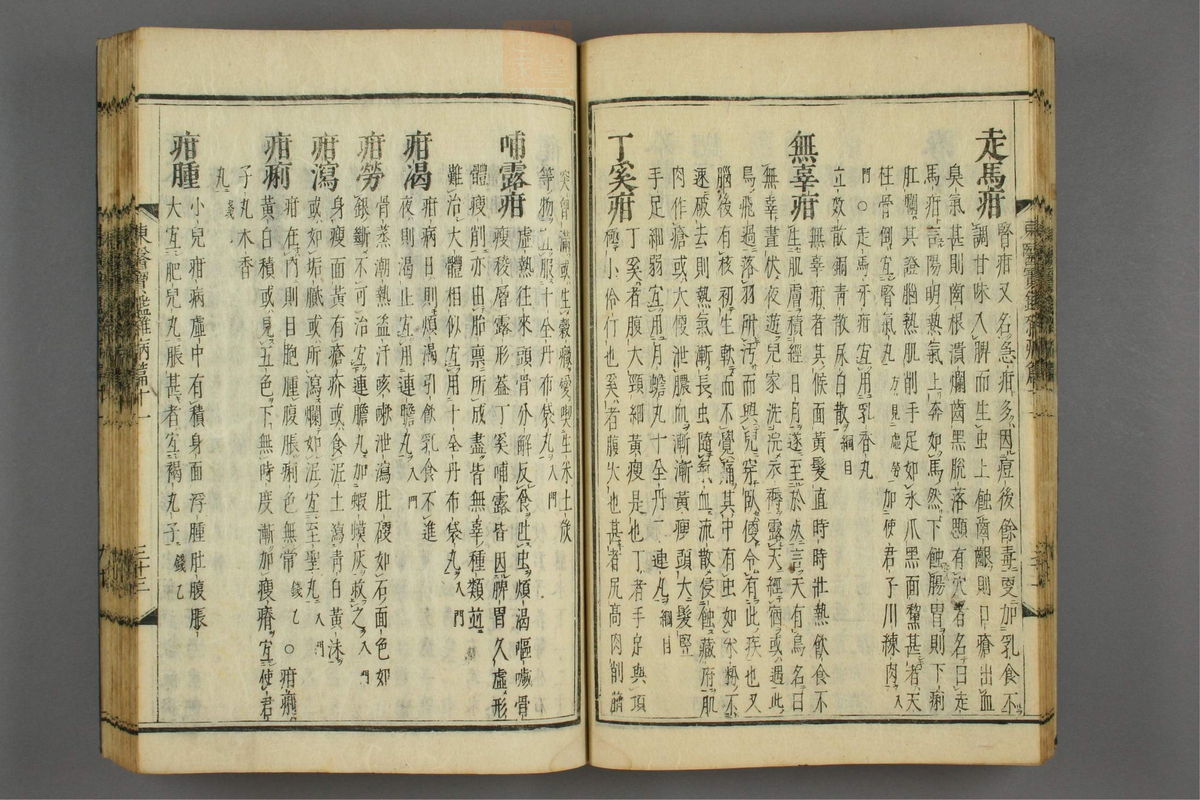 走馬疳
腎疳又名急疳多因痘後餘毒更加乳食不
調甘味入脾而生虫上蝕齒齦則口瘡出血
臭氣甚則齒根潰爛齒黑脫落顋有穴者名曰走
馬疳言陽明熱氣上奔如馬然下蝕腸胃則下痢
肛爛其證腦熱肌削手足如氷爪黑面黧甚者天
柱骨倒宜腎氣丸方見虛勞加使君子川練肉入
門○走馬牙疳宜用乳香丸
立效散爾靑散尿白散綱目
無辜疳
無辜疳者其候面黃髮直時時壯熱飮食不
生肌膚積經日月遂至於死言天有鳥名曰
無辜晝伏夜遊兒家洗浣衣褥露天經宿或遇此
鳥飛過落羽所汚而與兒穿臥便令有此疾也又
腦後有核初生軟而不覺痛其中有虫如米粉不
速破去則熱氣漸長虫隨熱血流散侵蝕藏府肌
肉作瘡或大便泄膿血漸漸黃瘦頭大髮竪
手足細弱宜用月蟾丸十全丹二連丸綱目
丁奚疳
丁奚者腹大頸細黃瘦是也丁者手足與項
極小伶仃也奚者腹大也甚者尻高肉削臍
突胷滿或生穀癥愛喫生米土炭
等物宜服十全丹布袋丸入門
哺露疳
虛熱往來頭骨分解反食吐虫煩渴嘔噦骨
體瘦稜層露形盖丁奚哺露皆因脾胃久虛形
體瘦削亦由胎稟所成盡皆無辜種類並
難治大體相似宜用十全丹布袋丸入門
疳渴
疳病日則煩渴引飮乳食不進
夜則渴止宜用連膽丸入門
疳勞
骨蒸潮熱盜汗咳嗽泄瀉肚硬如石面色如
銀斷不可治宜連膽丸加蝦蟆灰救之入門
疳瀉
身瘦面黃有瘡疥或食泥土瀉靑白黃沫
或如垢膩或所瀉爛如泥宜至聖丸入門
疳痢
疳在內則目胞腫腹脹痢色無常錢乙○疳痢
黃白積或見五色下無時度漸加瘦瘠宜使君
子丸木香
丸錢乙
疳腫
小兒疳病虛中有積身面浮腫肚腹脹
大宜肥兒丸脹甚者宜褐丸子錢乙
東醫寶鑑雜病篇十一
三十三